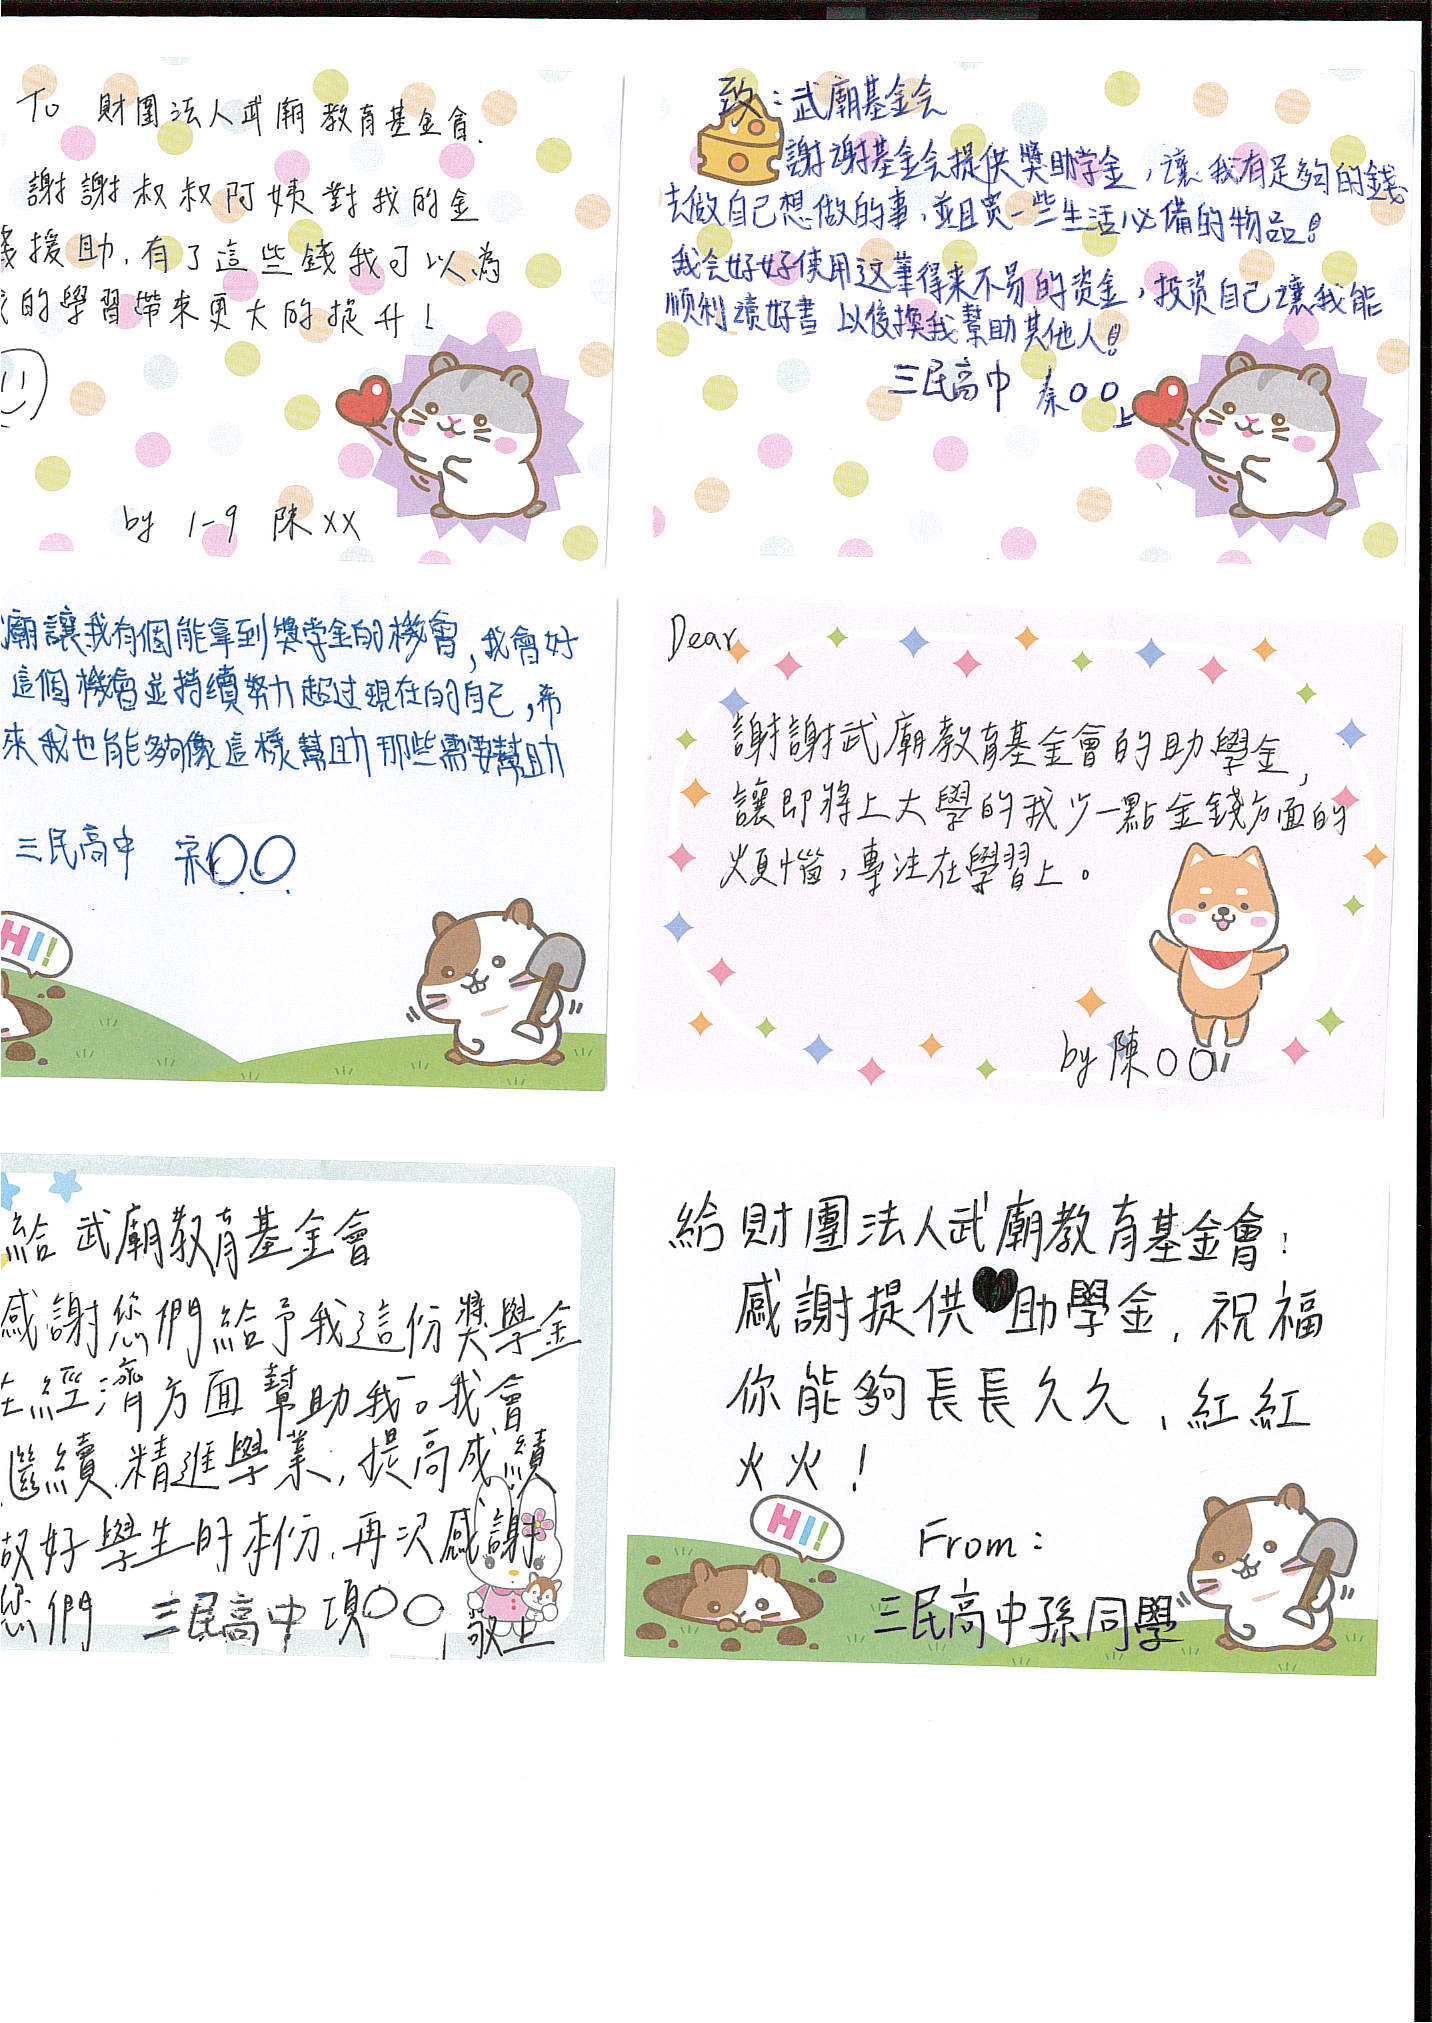 To 財團法人武廟教育基金會.
謝謝叔叔阿姨對我的金
錢援助,有了這些錢我可以為
我的學習帶來更大的提升!
by 1-9 陳xx
致:武廟基金会
謝謝基金会提供獎助学金,讓我有足夠的錢
去做自己想做的事,並且買一些生活必備的物品!
我会好好使用这筆得来不易的资金,投资自己讓我能
顺利讀好書 以後換我幫助其他人!
三民高中 秦〇〇上
廟讓我有個能拿到獎学金的機會,我會好
這個機會並持續努力超过現在的自己,希
來我也能夠像這樣幫助那些需要幫助
三民高中 宋〇〇
HI!
Dear
謝謝武廟教育基金會的助學金,
讓即將上大學的我少一點金錢方面的
煩惱,專注在學習上。
by 陳〇〇
給 武廟教育基金會
感謝您們給予我這份獎學金
在經濟方面幫助我。我會
繼續精進學業,提高成績
做好學生的本份,再次感謝
您們 三民高中 項〇〇 敬上
給財團法人武廟教育基金會:
感謝提供助學金,祝福
你能夠長長久久,紅紅
火火!
HI!
From:
三民高中孫同學